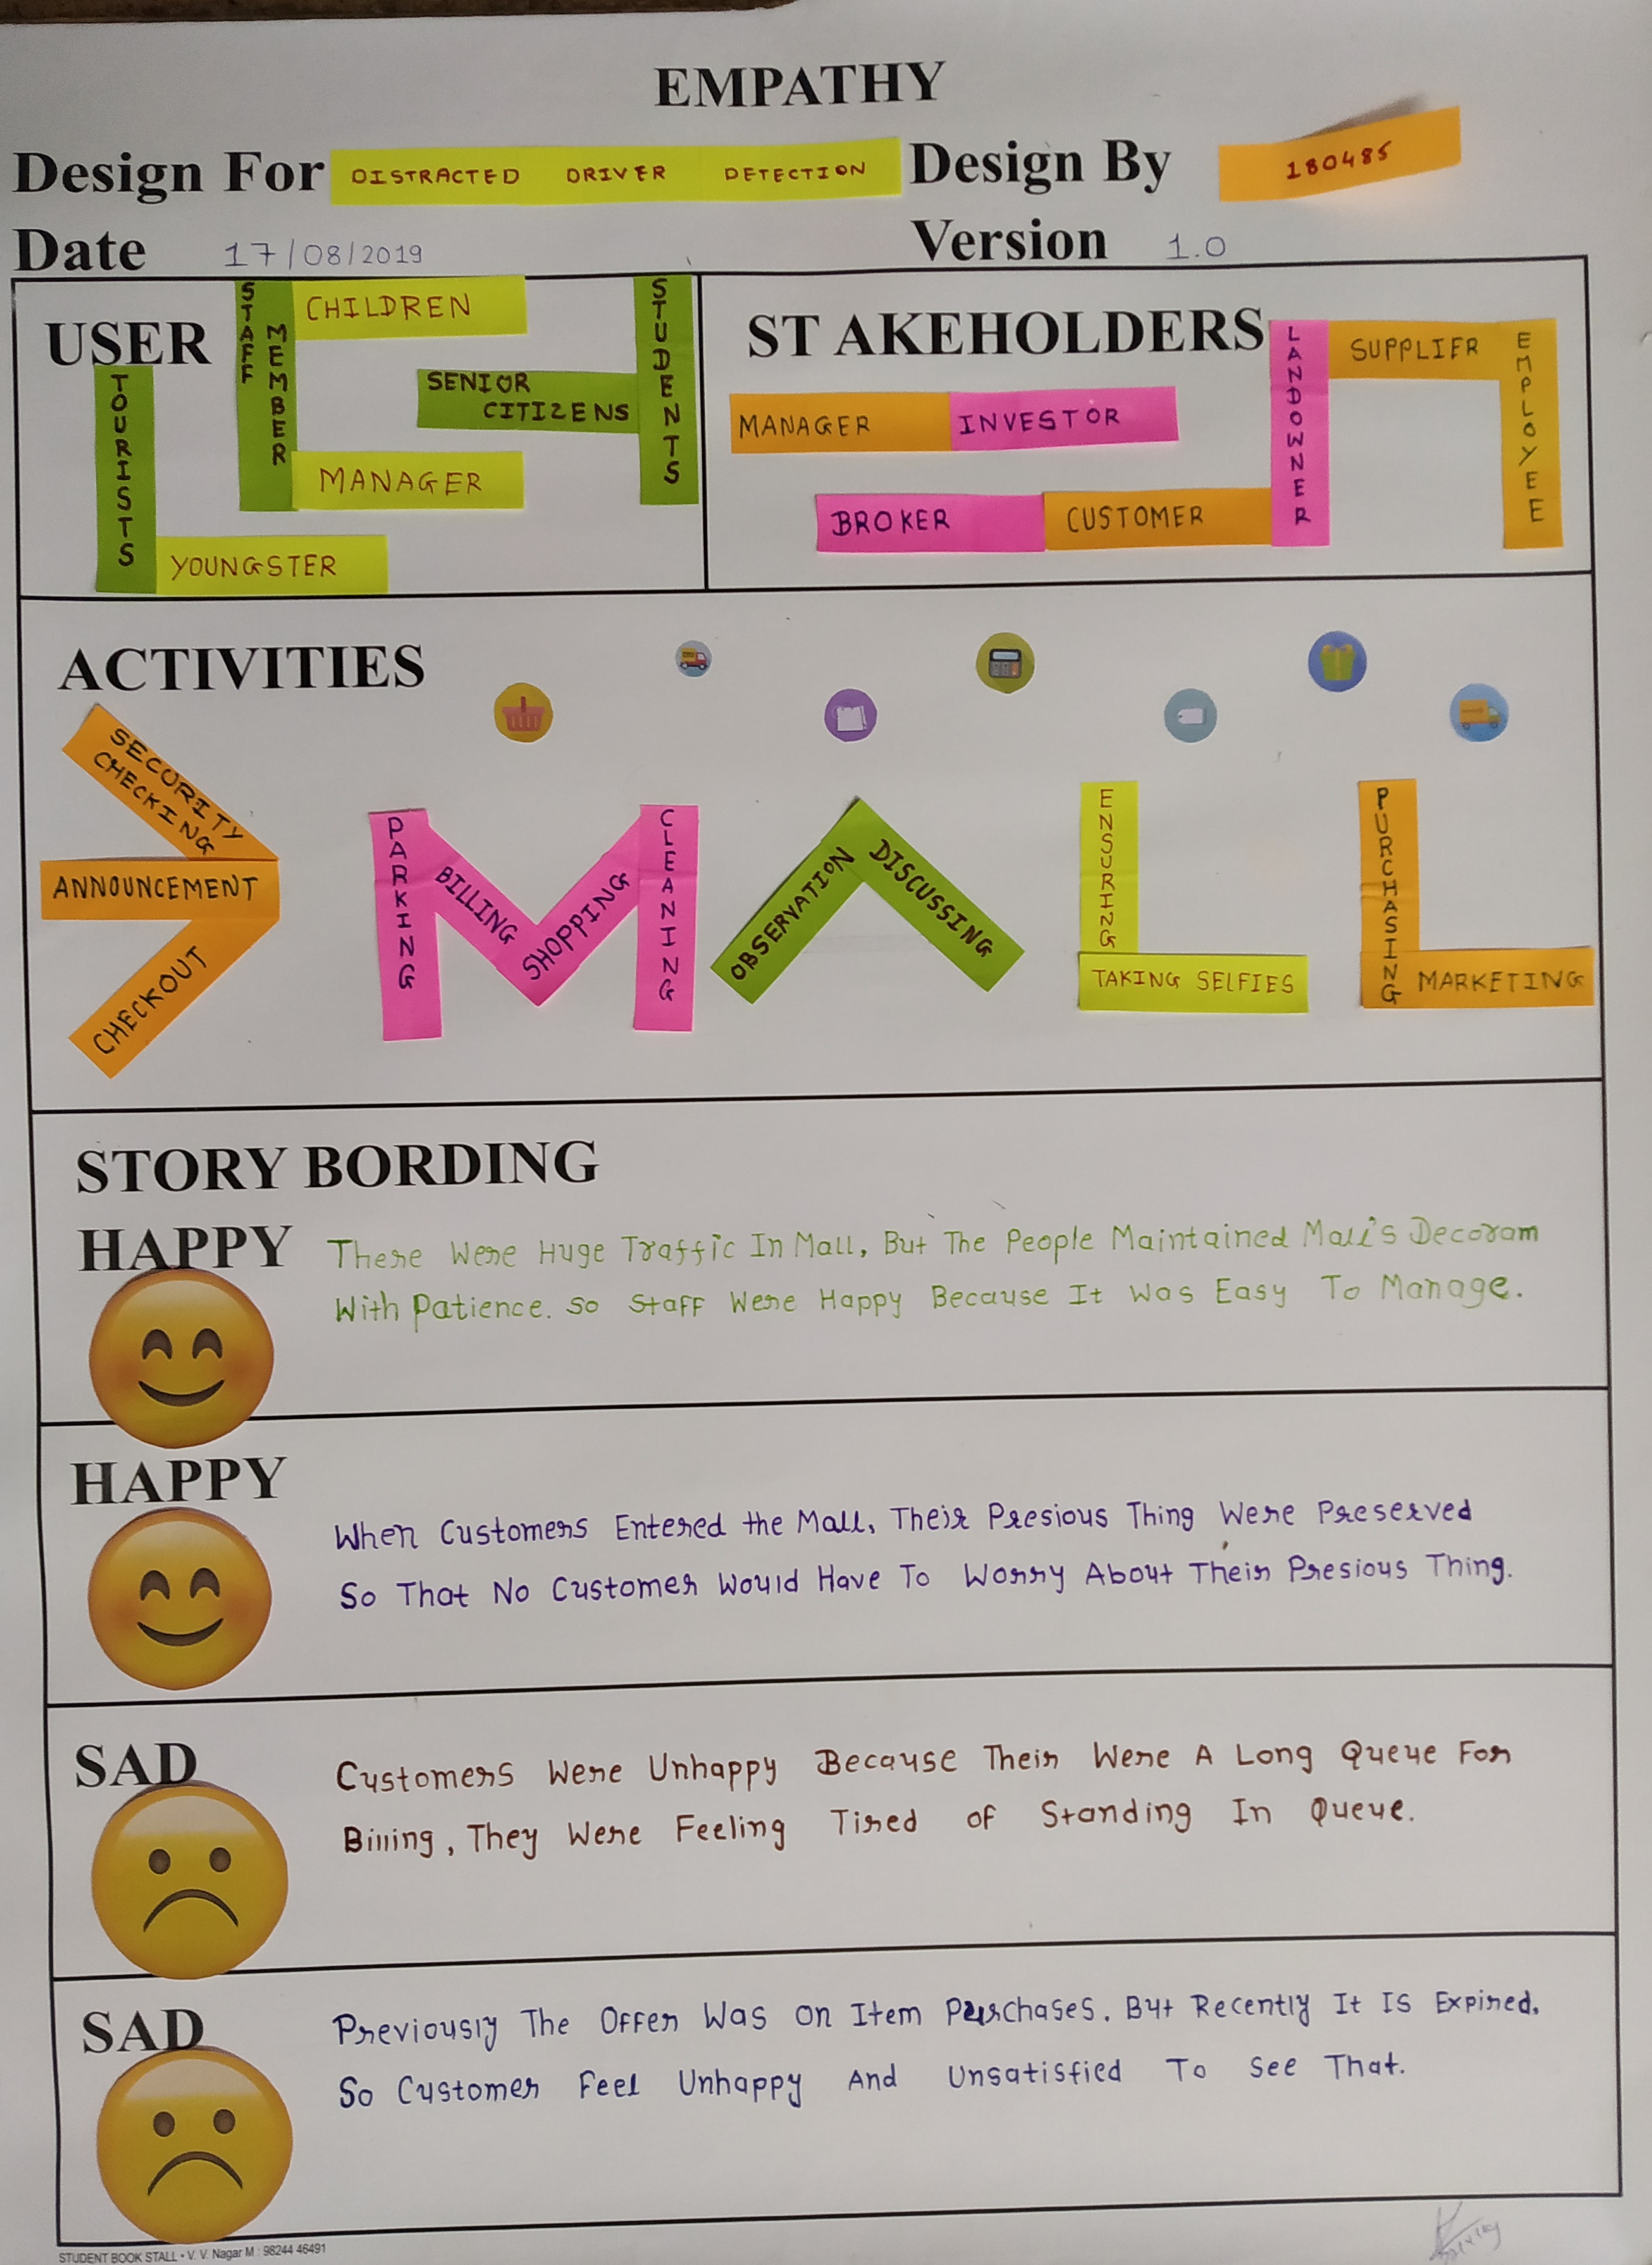 EMPATHY
Design For DISTRACTED DRIVER DETECTION Design By 180485
Date 17/08/2019 Version 1.0
USER
STAFF MEMBER
CHILDREN
STUDENTS
SENIOR
CITIZENS
TOURISTS
MANAGER
YOUNGSTER
ST AKEHOLDERS
LANDOWNER
SUPPLIER
EMPLOYEE
MANAGER INVESTOR
BROKER CUSTOMER
ACTIVITIES
SECURITY
CHECKING
ANNOUNCEMENT
CHECKOUT
PARKING
BILLING
SHOPPING
CLEANING
OBSERVATION
DISCUSSING
ENSURING
TAKING SELFIES
PURCHASING
MARKETING
STORY BORDING
HAPPY
There Were Huge Traffic In Mall, But The People Maintained Mall's Decoram
With Patience. So Staff Were Happy Because It Was Easy To Manage.
HAPPY
When Customers Entered the Mall, Their Presious Thing Were Preserved
So That No Customer Would Have To Worry About Their Presious Thing.
SAD
Customers Were Unhappy Because Their Were A Long Queue For
Billing, They Were Feeling Tired of Standing In Queue.
SAD
Previously The Offer Was On Item Purchases. But Recently It Is Expired.
So Customer Feel Unhappy And Unsatisfied To See That.
STUDENT BOOK STALL • V. V. Nagar M : 98244 46491